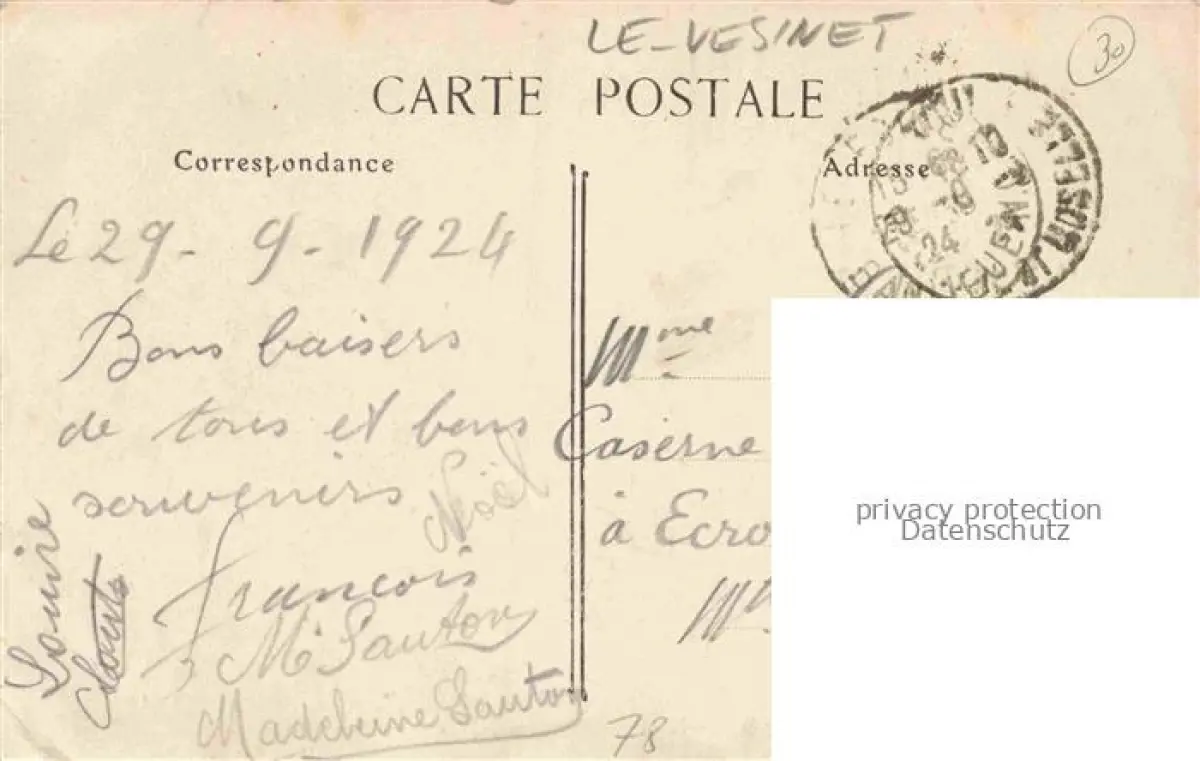 LE-VESINET
30
CARTE POSTALE
Correspondance
Adresse
Le 29 - 9 - 1924
Bons baisers
de tous et bons
souvenirs
Noël
François
M Sauton
Madeleine Sauton
Louise
Mme
Caserne
à Ecro
78
24
privacy protection
Datenschutz